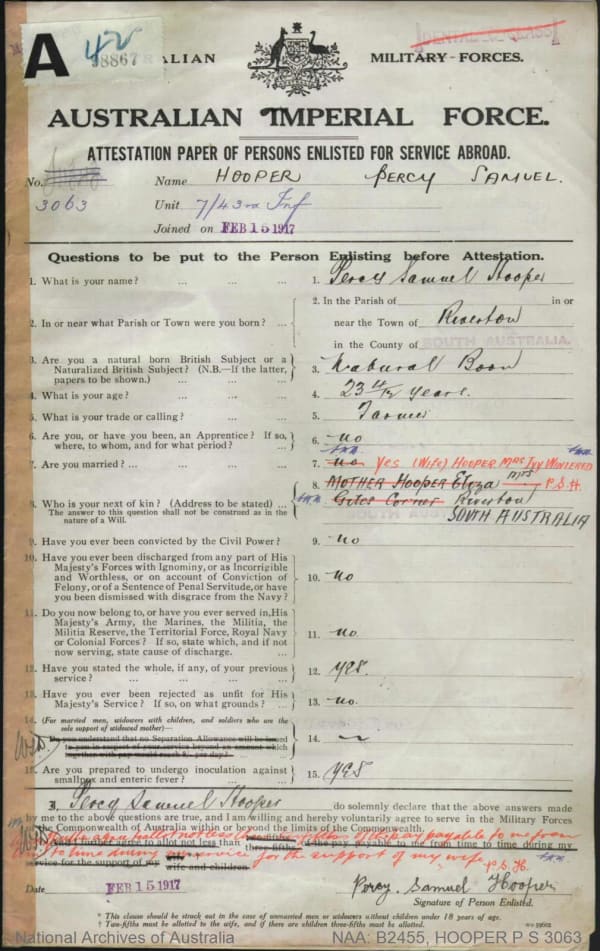 A
42
98867
ALIAN MILITARY FORCES.
DENTAL CLASS
AUSTRALIAN IMPERIAL FORCE.
ATTESTATION PAPER OF PERSONS ENLISTED FOR SERVICE ABROAD.
No. Name HOOPER PERCY SAMUEL.
3063 Unit 7/43rd Inf
Joined on FEB 15 1917
Questions to be put to the Person Enlisting before Attestation.
1. What is your name? ... ... ... 1. Percy Samuel Hooper
2. In or near what Parish or Town were you born? ... 2. In the Parish of in or
near the Town of Riverton
in the County of
SOUTH AUSTRALIA.
3. Are you a natural born British Subject or a
Naturalized British Subject? (N.B.—If the latter,
papers to be shown.) ... ... ... 3. Natural Born
4. What is your age? ... ... ... 4. 23 4/12 years.
5. What is your trade or calling? ... ... 5. Farmer
6. Are you, or have you been, an Apprentice? If so,
where, to whom, and for what period? ... 6. no
7. Are you married? ... ... ... 7. no Yes (Wife) HOOPER MRS IVY
8. Who is your next of kin? (Address to be stated) ...
The answer to this question shall not be construed as in the
nature of a Will. 8. MOTHER HOOPER Eliza MRS P.S.H.
Giles Corner Riverton
SOUTH AUSTRALIA
9. Have you ever been convicted by the Civil Power? 9. no
10. Have you ever been discharged from any part of His
Majesty's Forces with Ignominy, or as Incorrigible
and Worthless, or on account of Conviction of
Felony, or of a Sentence of Penal Servitude, or have
you been dismissed with disgrace from the Navy? 10. no
11. Do you now belong to, or have you ever served in, His
Majesty's Army, the Marines, the Militia, the
Militia Reserve, the Territorial Force, Royal Navy
or Colonial Forces? If so, state which, and if not
now serving, state cause of discharge. ... 11. no
12. Have you stated the whole, if any, of your previous
service? ... ... ... ... 12. YES.
13. Have you ever been rejected as unfit for His
Majesty's Service? If so, on what grounds? ... 13. no.
14. (For married men, widowers with children, and soldiers who are the
sole support of widowed mother)—
Do you understand that no Separation Allowance will be issued
to you in respect of your service beyond an amount which
together with pay would reach 8/- per day? 14. ~
15. Are you prepared to undergo inoculation against
smallpox and enteric fever? ... ... 15. YES
I, Percy Samuel Hooper do solemnly declare that the above answers made
by me to the above questions are true, and I am willing and hereby voluntarily agree to serve in the Military Forces
of the Commonwealth of Australia within or beyond the limits of the Commonwealth.
agree to allot not less than three-fifths of the pay payable to me from time to time during my
service for the support of my wife and children
payable to me from
to time during my service for the support of my wife P.S.H.
Date FEB 15 1917 Percy. Samuel Hooper
Signature of Person Enlisted.
* This clause should be struck out in the case of unmarried men or widowers without children under 18 years of age.
† Two-fifths must be allotted to the wife, and if there are children three-fifths must be allotted.
National Archives of Australia NAA: B2455, HOOPER P S 3063